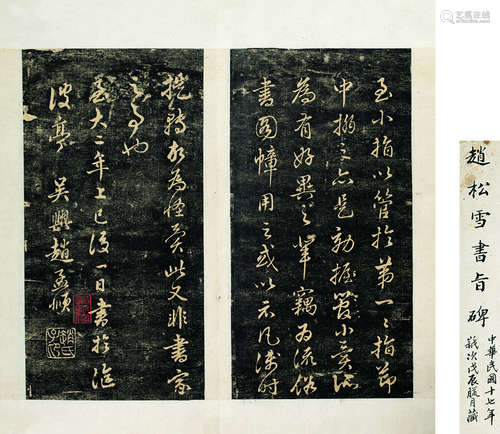 趙松雪書旨碑
中華民國十七年
歲次戊辰臘月藏
至小指以管於第一二指節
中搦之亦是効握管小異所
為有好異之輩竊為流俗
書圖幛用之或以示凡淺時
提轉甚為怪異此又非書家
之事也
至大二年上巳後一日書於滄
波亭 吳興趙孟頫
趙氏子昂